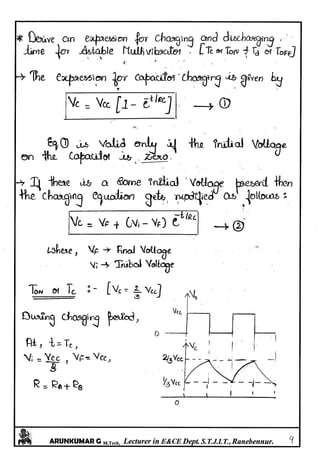 * Derive an expression for Charging and discharging
time for Astable Multivibrator. [Tc or TON & Td or TOFF]
→ The Expression for Capacitor Charging is given by
Vc = Vcc [1 - e^-t/RC] → ①
Eq ① is Valid only if the initial Voltage
on the Capacitor is Zero.
→ If there is a some initial Voltage present then
the charging equation gets modified as follows:
Vc = VF + (Vi - VF) e^-t/RC → ②
where, VF → Final Voltage
Vi → Initial Voltage
TON or Tc :- [Vc = 2/3 Vcc]
During Charging period,
At, t = Tc,
Vi = Vcc/3, VF = Vcc,
R = RA + RB
Vo
Vcc
0
Vc
2/3 Vcc
1/3 Vcc
0
ARUNKUMAR G M.Tech, Lecturer in E&CE Dept. S.T.J.I.T., Ranebennur. 9